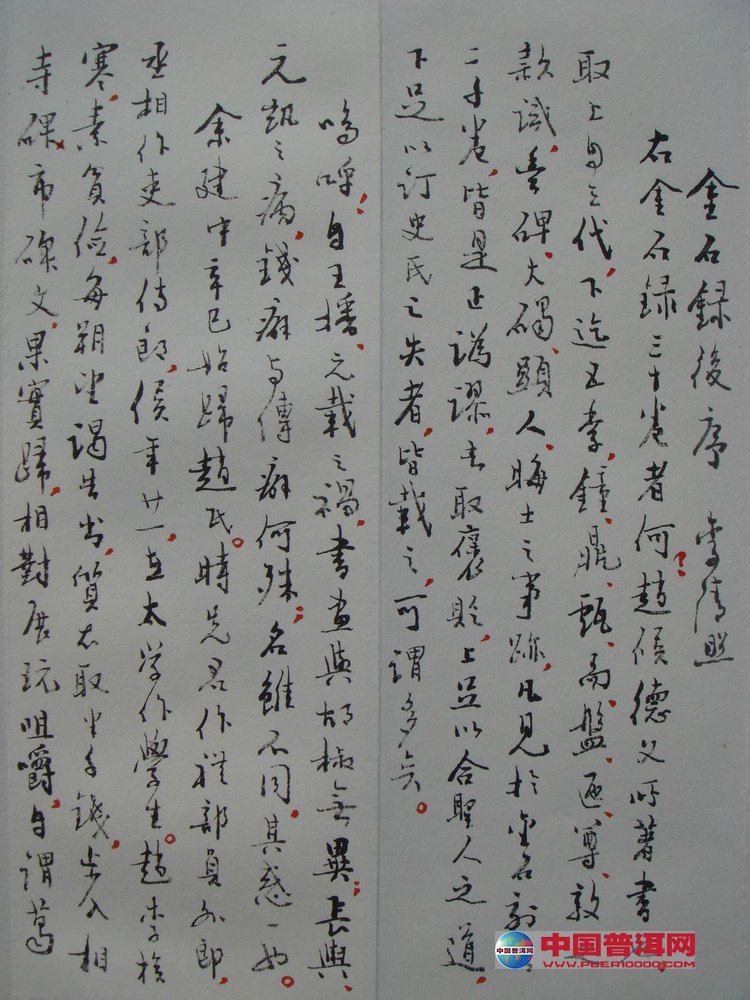 金石録後序 李清照
右金石録三十卷者何？趙侯德父所著書也。
取上自三代，下迄五季，鐘、鼎、甗、鬲、盤、匜、尊、敦之
款識，豊碑、大碣，顯人、晦士之事跡，凡見於金石刻
二千卷，皆是正譌謬，去取褒貶，上足以合聖人之道，
下足以訂史氏之失者，皆載之，可謂多矣。
嗚呼，自王播、元載之禍，書畫與胡椒無異；長輿、
元凱之病，錢癖與傳癖何殊。名雖不同，其惑一也。
余建中辛巳始歸趙氏。時先君作禮部員外郎，
丞相作吏部侍郎，侯年廿一，在太学作學生。趙李族
寒，素貧儉，每朔望謁告出，質衣取半千錢，步入相
寺碑市碑文、果實歸，相對展玩咀嚼，自謂葛
中国普洱网
WWW.PUER10000.COM